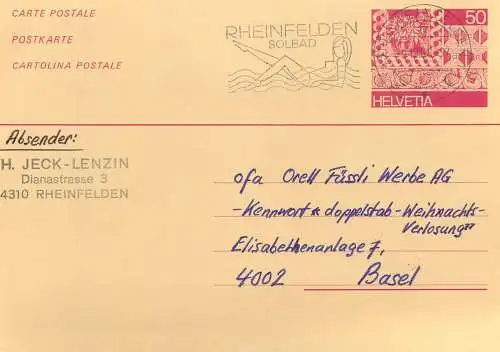 CARTE POSTALE
POSTKARTE
CARTOLINA POSTALE
RHEINFELDEN
SOLBAD
50
HELVETIA
Absender:
H. JECK-LENZIN
Dianastrasse 3
4310 RHEINFELDEN
ofa Orell Füssli Werbe AG
-Kennwort * doppelstab-Weihnachts-
Verlosung"
Elisabethenanlage 7,
4002 Basel